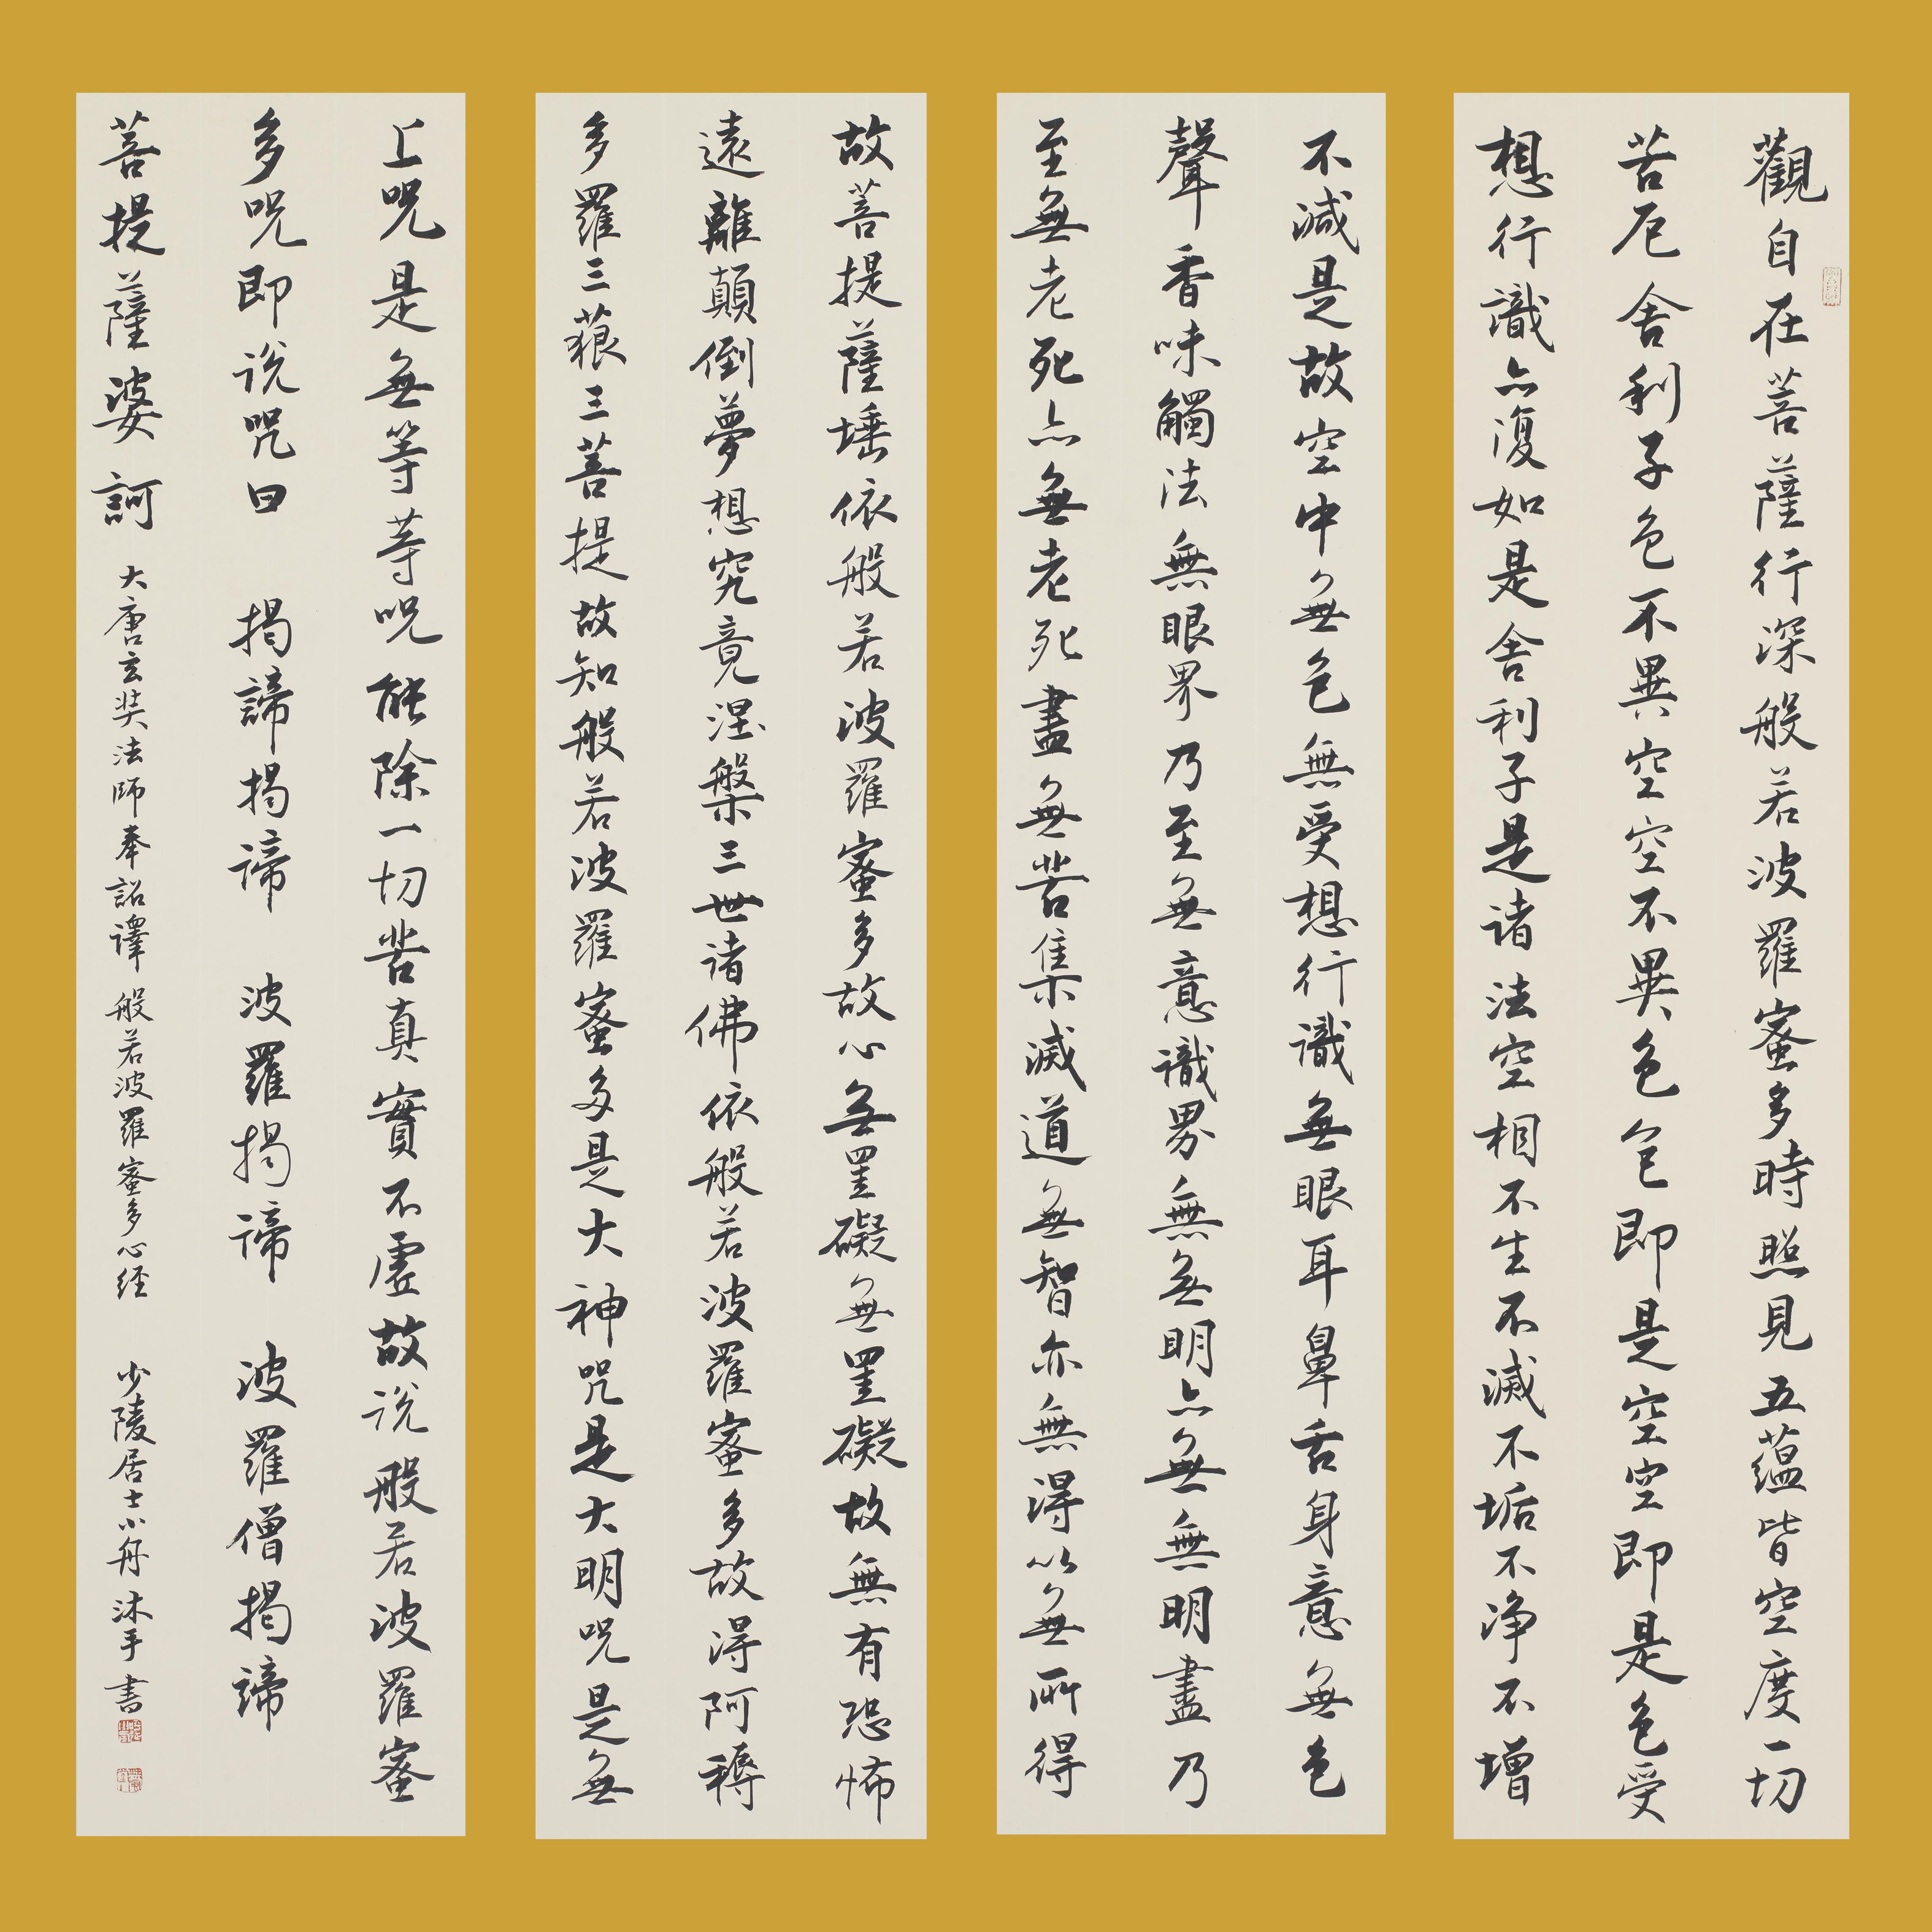 觀自在菩薩行深般若波羅蜜多時照見五蘊皆空度一切
苦厄舍利子色不異空空不異色色即是空空即是色受
想行識亦復如是舍利子是諸法空相不生不滅不垢不净不增
不減是故空中無色無受想行識無眼耳鼻舌身意無色
聲香味觸法無眼界乃至無意識界無無明亦無無明盡乃
至無老死亦無老死盡無苦集滅道無智亦無得以無所得
故菩提薩埵依般若波羅蜜多故心無罣礙無罣礙故無有恐怖
遠離顛倒夢想究竟涅槃三世諸佛依般若波羅蜜多故得阿耨
多羅三藐三菩提故知般若波羅蜜多是大神咒是大明咒是無
上咒是無等等咒能除一切苦真實不虛故説般若波羅蜜
多咒即説咒曰 揭諦揭諦 波羅揭諦 波羅僧揭諦
菩提薩婆訶 大唐玄奘法師奉詔譯 般若波羅蜜多心経 少陵居士小舟沐手書